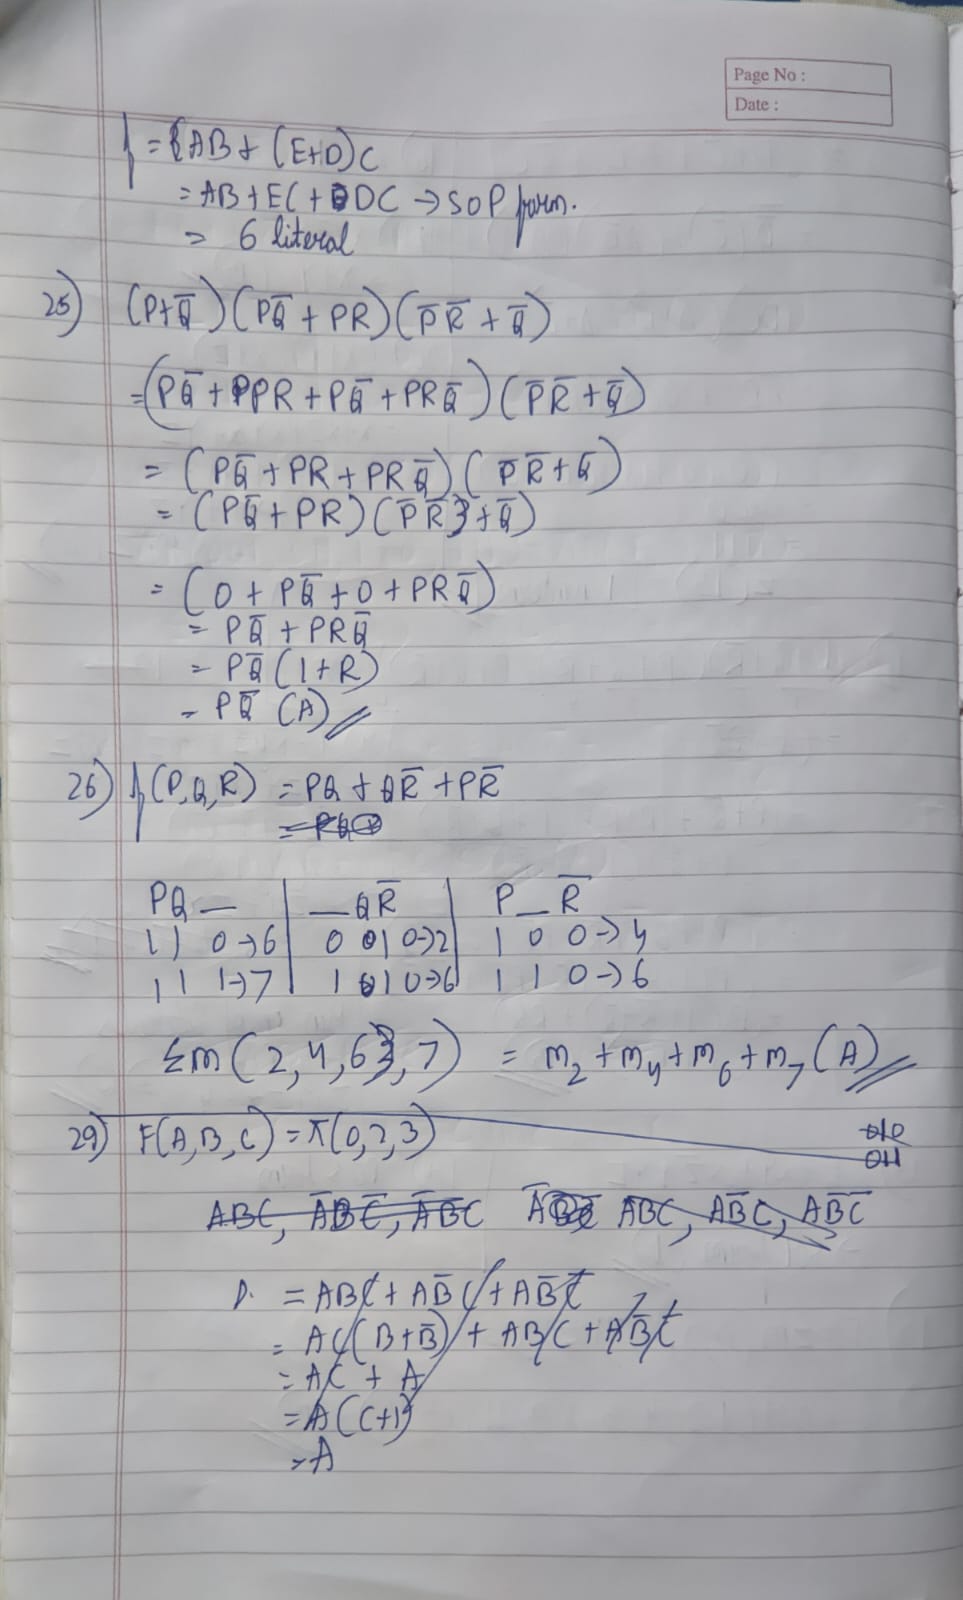 Page No :
Date :
f = {AB + (E+D)C
= AB + EC + DC → SOP form.
= 6 literal
25) (P+Q̅)(PQ̅ + PR)(P̅R̅ + Q̅)
= (PQ̅ + PPR + PQ̅ + PRQ̅)(P̅R̅ + Q̅)
= (PQ̅ + PR + PRQ̅)(P̅R̅ + Q̅)
= (PQ̅ + PR)(P̅R̅ + Q̅)
= (0 + PQ̅ + 0 + PRQ̅)
= PQ̅ + PRQ̅
= PQ̅ (1+R)
= PQ̅ (A)
26) f(P,Q,R) = PQ + QR̅ + PR̅
PQ_ | _QR̅ | P_R̅
1 1 0→6 | 0 1 0→2 | 1 0 0→4
1 1 1→7 | 1 1 0→6 | 1 1 0→6
Σm(2,4,6,7) = m₂ + m₄ + m₆ + m₇ (A)
29) F(A,B,C) = π(0,2,3)
010
011
ABC, A̅BC̅, A̅BC ABC, AB̅C, AB̅C̅
= ABC + AB̅C + AB̅C̅
= AC(B+B̅) + ABC + AB̅C̅
= AC + A
= A(C+1)
= A